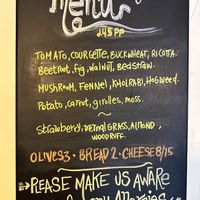 Menu
£45PP
TOMATO, COURGETTE, BUCKWHEAT, RICOTTA.
Beetroot, Fig, walnut, Bedstraw.
MUSHROOM, FENNEL, KHOLRABI, HOGWEED.
Potato, carrot, girolles, moss.
~
Strawberry, vernal GRASS, ALMOND,
WOODRUFF.
OLIVES 3 • BREAD 2 • CHEESE 8/15
PLEASE MAKE US AWARE
any Allergies